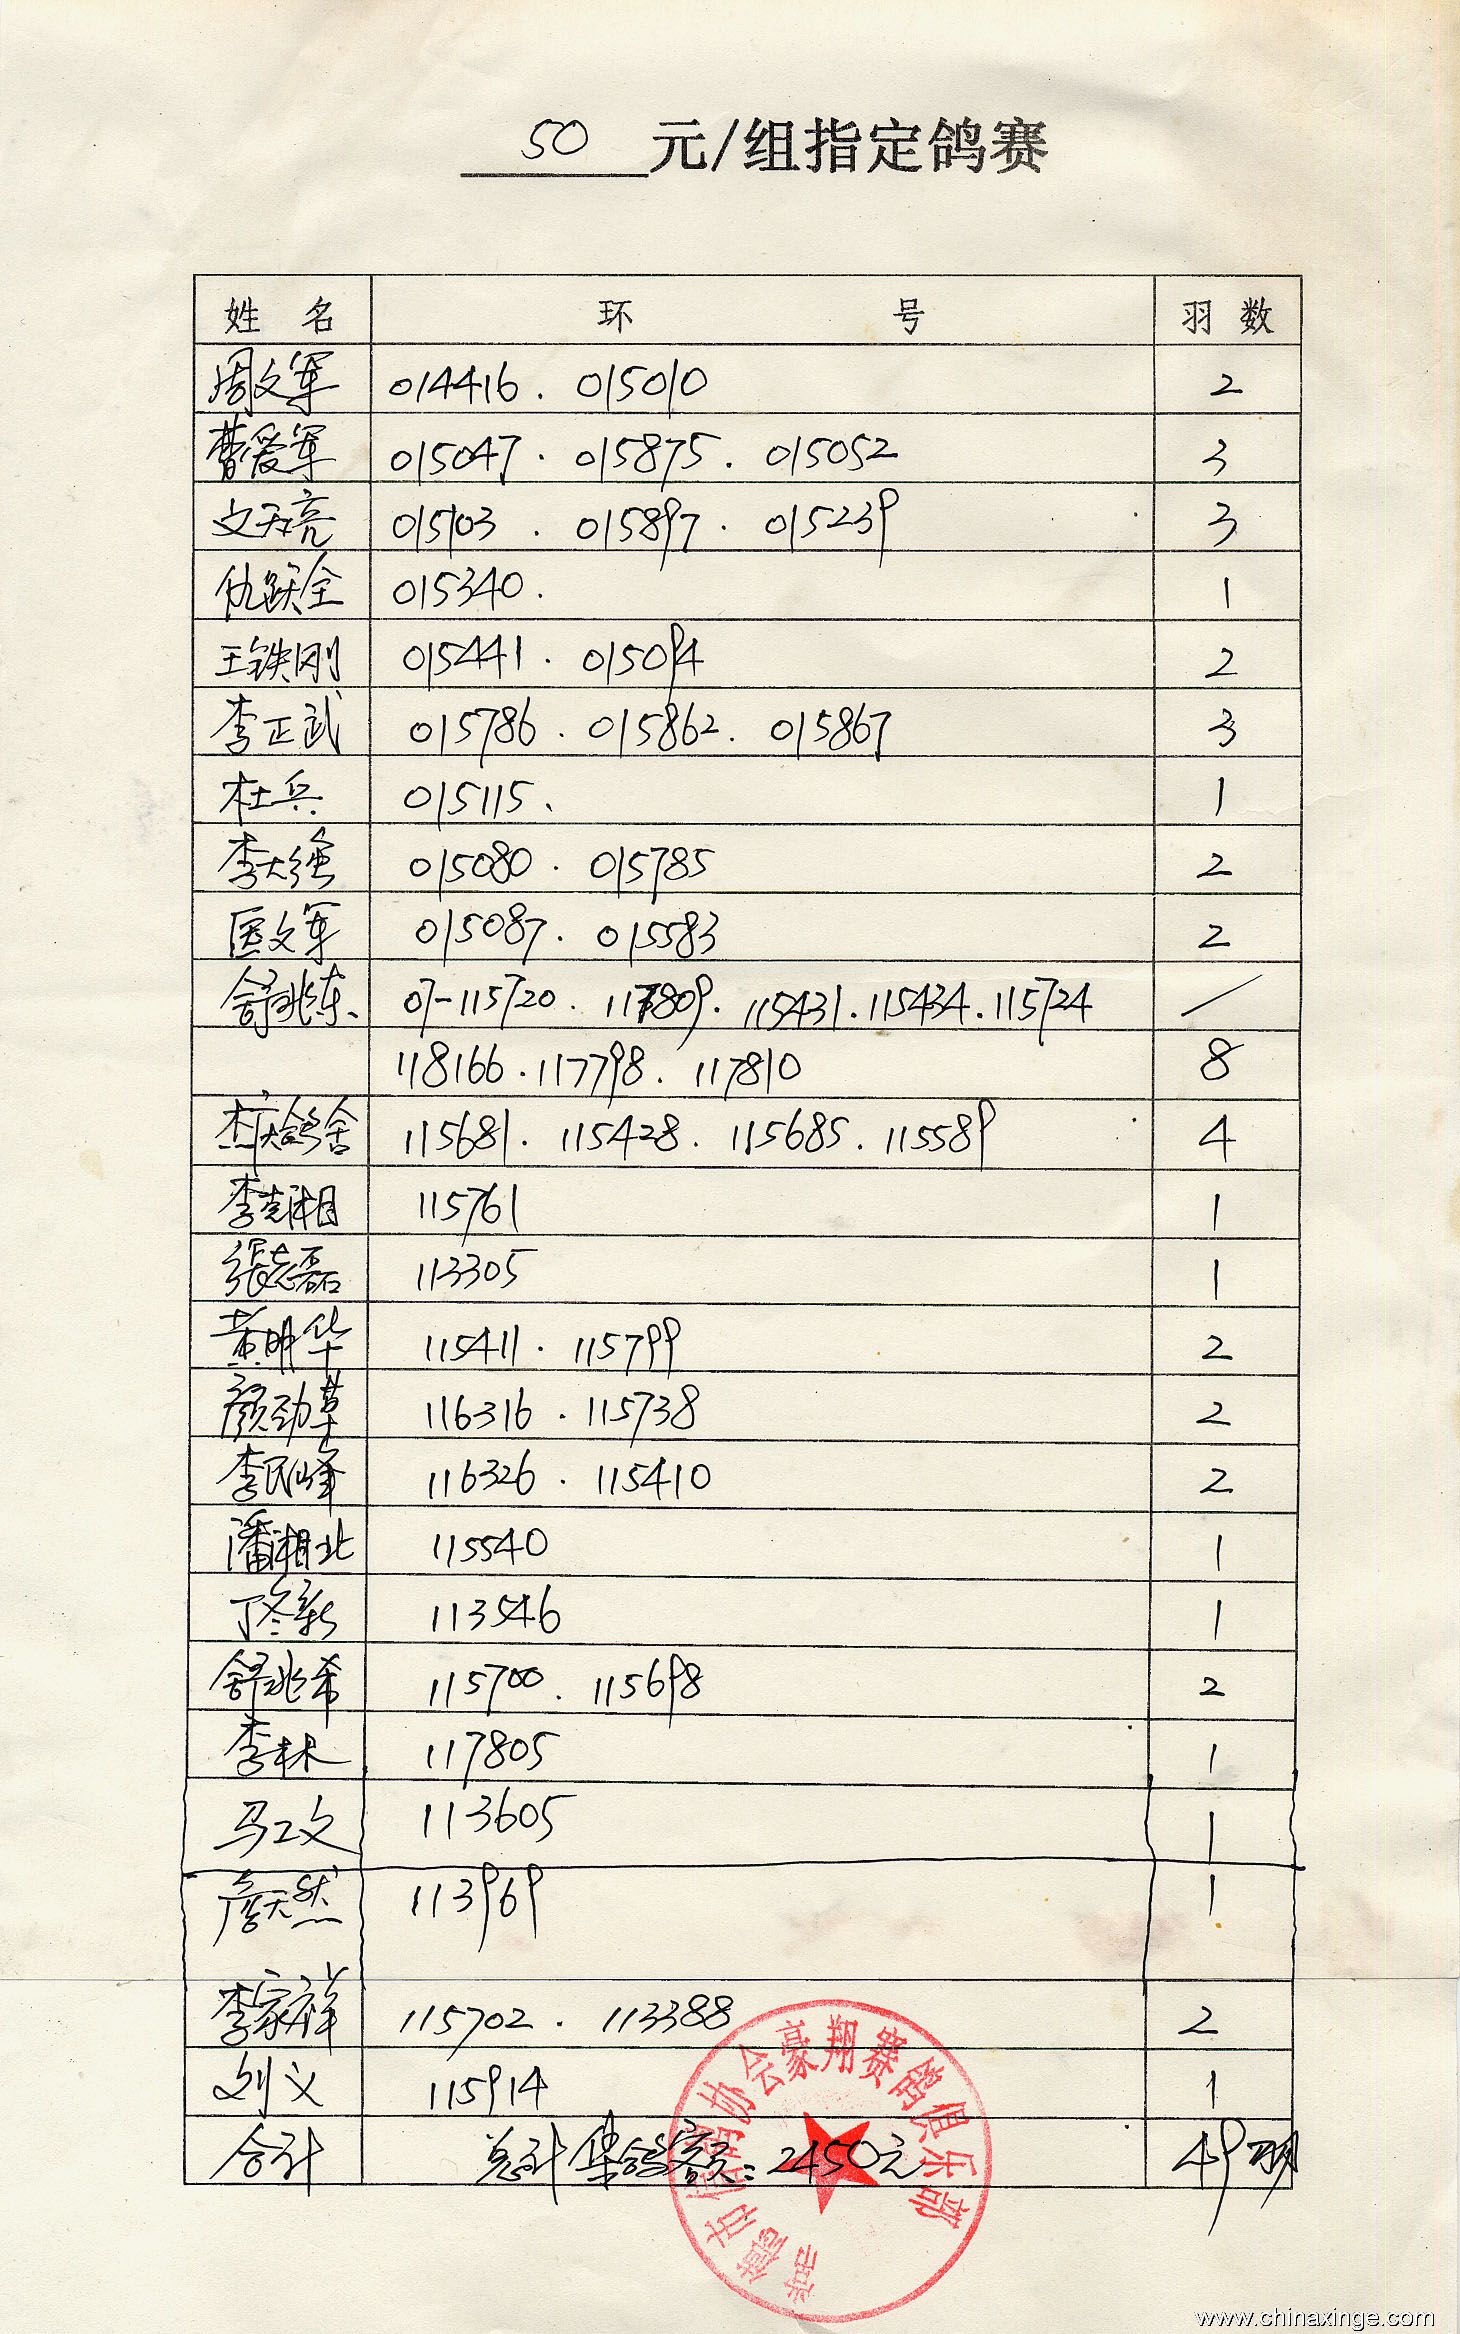 50 元/组指定鸽赛
姓 名 环 号 羽 数
周文军 014416. 015010 2
曹爱军 015047. 015875. 015052 3
文天亮 015103. 015897. 015239 3
仇跃全 015340. 1
王铁刚 015441. 015094 2
李正武 015786. 015862. 015867 3
杜兵 015115、 1
李大强 015080. 015785 2
匡文军 015087. 015583 2
舒兆东、 07-115720. 117809. 115431. 115434. 115724 /
118166. 117798. 117810 8
杰庆鸽舍 115681. 115428. 115685. 115589 4
李克湘 115761 1
张志磊 113305 1
黄明华 115411. 115799 2
颜劲草 116316. 115738 2
李民峰 116326. 115410 2
潘湘北 115540 1
丁冬新 113546 1
舒兆希 115700. 115698 2
李林 117805 1
马工文 113605 1
詹天然 113969 1
李家祥 115702. 113388 2
刘义 115914 1
合计 总计集鸽资: 2450元 49羽
常德市信鸽协会豪翔赛鸽俱乐部
www.chinaxinge.com